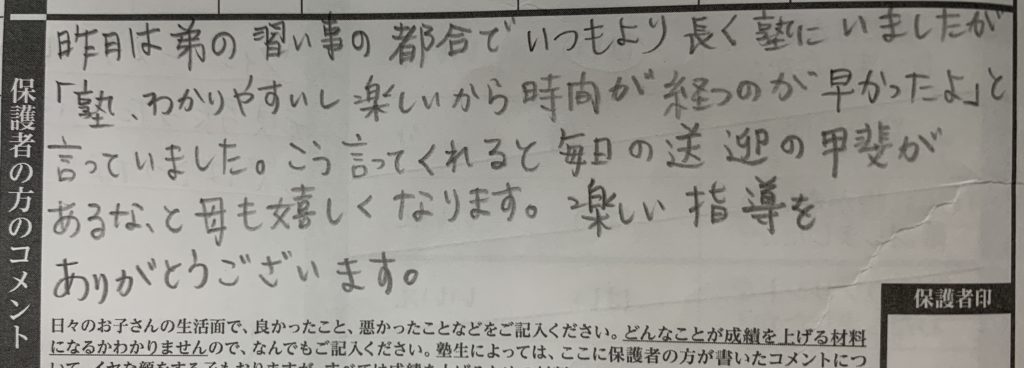 保護者の方のコメント
昨日は弟の習い事の都合でいつもより長く塾にいましたが
「塾、わかりやすいし楽しいから時間が経つのが早かったよ」と
言っていました。こう言ってくれると毎日の送迎の甲斐が
あるな、と母も嬉しくなります。楽しい指導を
ありがとうございます。
保護者印
日々のお子さんの生活面で、良かったこと、悪かったことなどをご記入ください。どんなことが成績を上げる材料
になるかわかりませんので、なんでもご記入ください。塾生によっては、ここに保護者の方が書いたコメントにつ